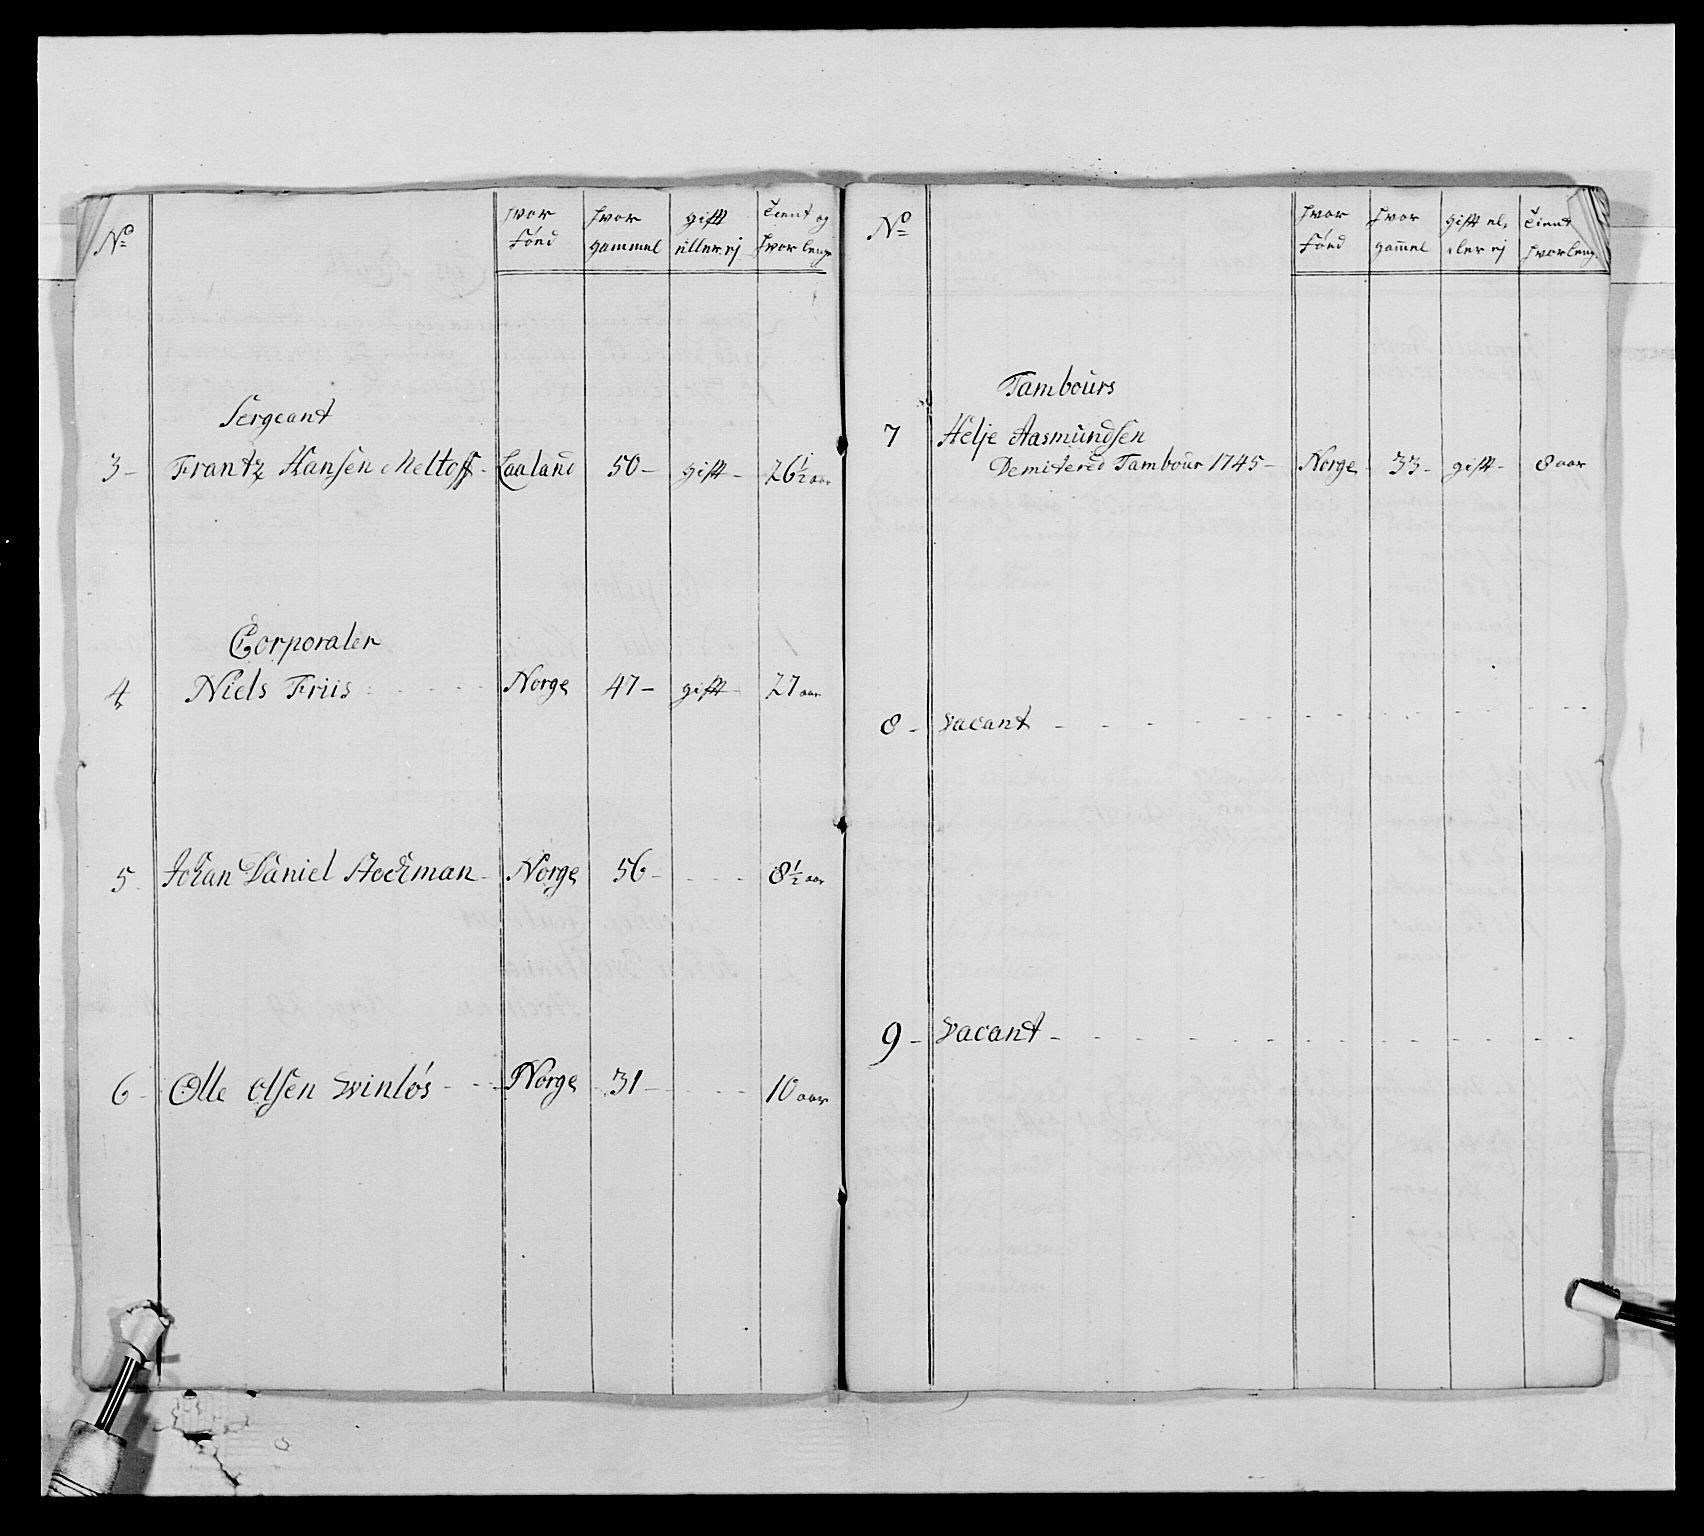 No hvor hvor gifft tient og
fönd gammel eller ej hvor lenge
Sergeant
3 - Frantz Hansen Meltoff - Laaland 50 - gifft - 26½ aar
Corporaler
4 Niels Friis - - - - Norge 47 - gifft - 27 aar
5 - Johan Daniel Stockman - Norge 56 - - - - 8½ aar
6 - Olle Olsen Svinlös - - - Norge 31 - - - 10 aar
No hvor hvor gifft el, tient
fönd gam̄el eler ej hvorleng.
Tambours
7 Helje Aasmundsen
Demitered Tambour 1745 - Norge 33 - gifft - 8 aar
8 - vacant - - - - - - - - - -
9 - vacant - - - - - - - - - -